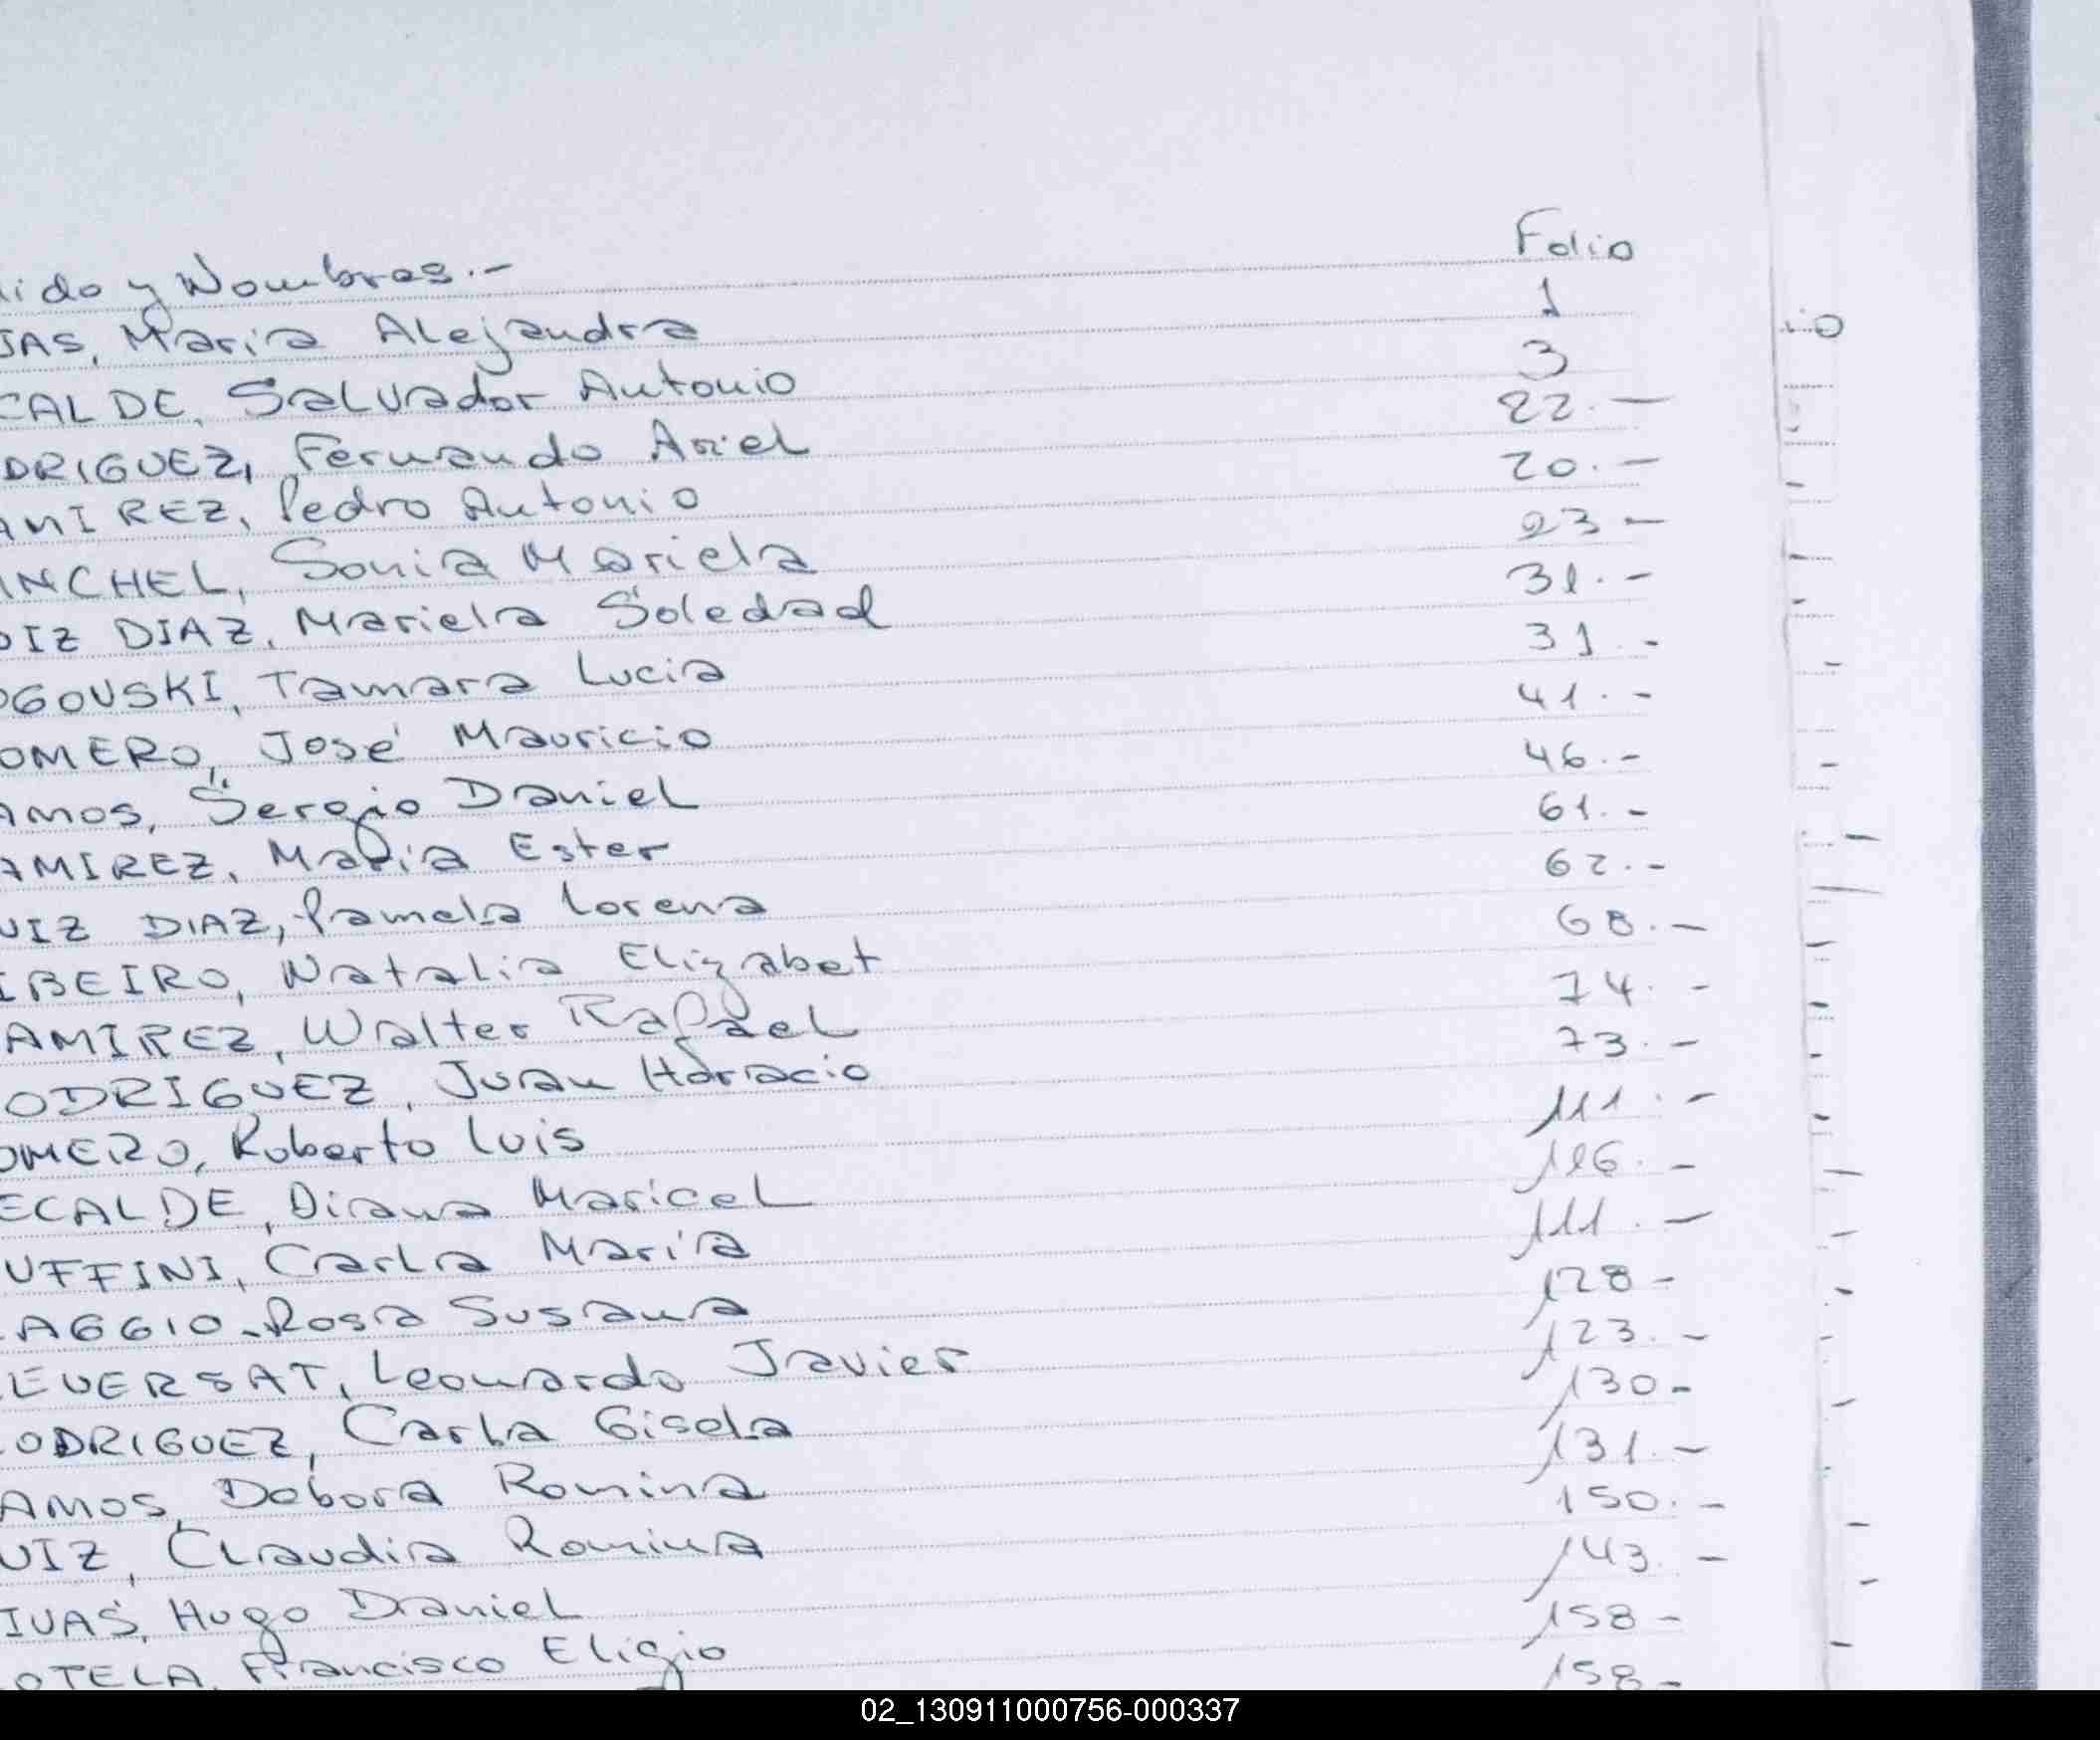 ido y Nombres.- Folio
JAS, Maria Alejandra 1
CALDE, Salvador Antonio 3
DRIGUEZ, Fernando Ariel 22.-
AMIREZ, Pedro Antonio 20.-
INCHEL, Sonia Mariela 23-
UIZ DIAZ, Mariela Soledad 31.-
OGOVSKI, Tamara Lucia 31.-
OMERO, José Mauricio 41.-
AMOS, Sergio Daniel 46.-
AMIREZ, Maria Ester 61.-
UIZ DIAZ, Pamela Lorena 62.-
IBEIRO, Natalia Elizabet 68.-
AMIREZ, Walter Rafael 74.-
ODRIGUEZ, Juan Horacio 73.-
OMERO, Roberto Luis 111.-
ECALDE, Diana Maricel
UFFINI, Carla Maria 111.-
AGGIO, Rosa Susana 128-
EVERSAT, Leonardo Javier 123.-
ODRIGUEZ, Carla Gisela 130-
AMOS, Debora Romina 131.-
UIZ, Claudia Romina 150.-
IVAS, Hugo Daniel 143.-
OTELA, Francisco Eligio 158-
158-
io
02_130911000756-000337